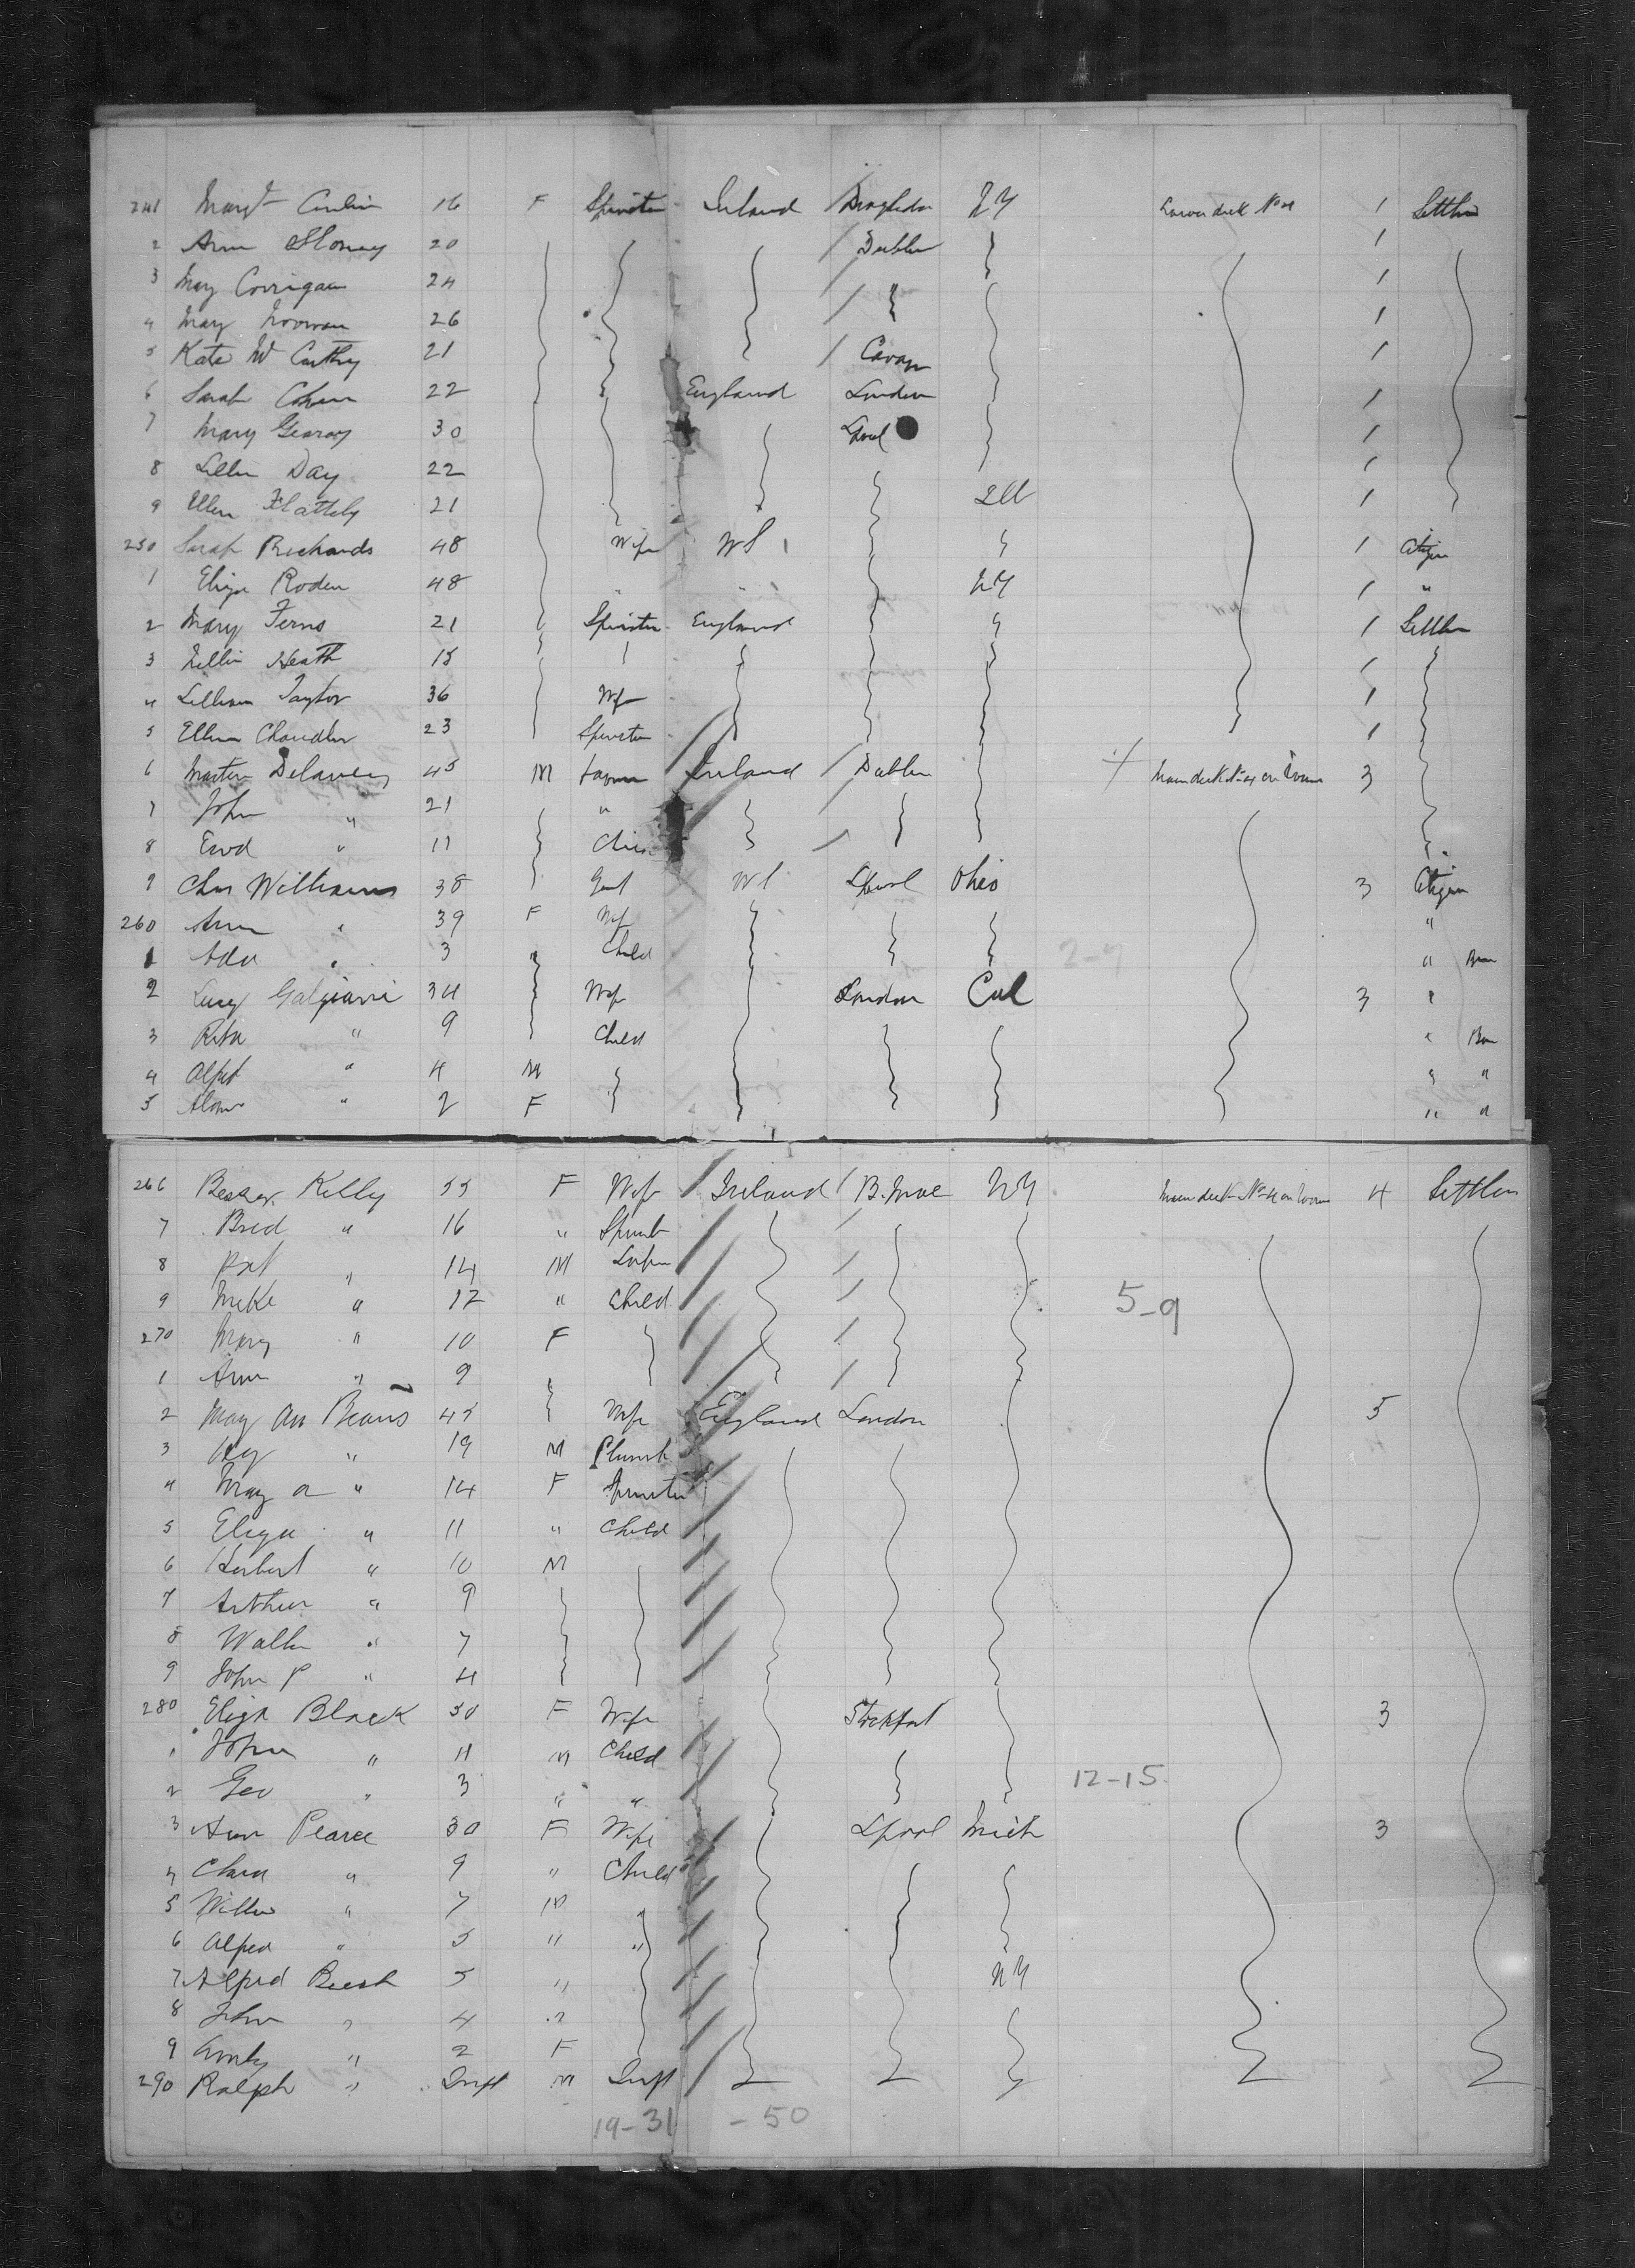 241 Margt 16 F Spinster Ireland N Y Lower deck No 4 1 Settler
2 Ann Sloney 20 Dublin 1
3 May Corrigan 24 1
4 May Noonan 26 " 1
5 Kate Mc Carthy 21 Cavan 1
6 Sarah Cohen 22 England London 1
7 Mary Gearoy 30 Lpool 1
8 Day 22 1
9 Ellen Flattely 21 Ill 1
250 Sarah Richards 48 Wife US 1 Citizen
1 Eliza Roden 48 " " N Y 1 "
2 Mary Ferns 21 Spinster England 1 Settler
3 Nellie Heath 15 1
4 Lillian Taylor 36 Wife 1
5 Ellen Chandler 23 Spinster 1
6 Martin Delaney 45 M Farmer Ireland Dublin Main deck 3
7 John " 21 "
8 Ewd " 11 Child
9 Chas Williams 38 Gent US Lpool Ohio 3 Citizen
260 Ann " 39 F Wife "
1 Ada " 3 " Child 2-9 "
2 Lucy Galgiani 34 Wife London Cal 3 "
3 Rita " 9 Child "
4 Alfred " 4 M " "
5 " 2 F " "
266 Kelly 55 F Wife Ireland N Y Main deck 4 Settler
7 Brid " 16 " Spinst
8 Pat " 14 M
9 Mike " 12 " Child 5-9
270 Mary " 10 F
1 Ann " 9 "
2 May Ann Beavis 45 Wife England London 5
3 " 19 M Plumb
4 May a " 14 F Spinster
5 Eliza " 11 " Child
6 Herbert " 10 M
7 Arthur " 9
8 Walter " 7
9 John P " 4
280 Eliza Black 30 F Wife Stockport 3
1 John " M Child
2 Geo " 3 " " 12-15
3 Ann Pearce 30 F Wife Lpool Mich 3
4 Clara " 9 " Child
5 Willie " 7 M "
6 Alfred " 5 " "
7 Alfred 5 " N Y
8 John " 4 "
9 " 2 F
290 Ralph " Inft M Inft
19-31 - 50